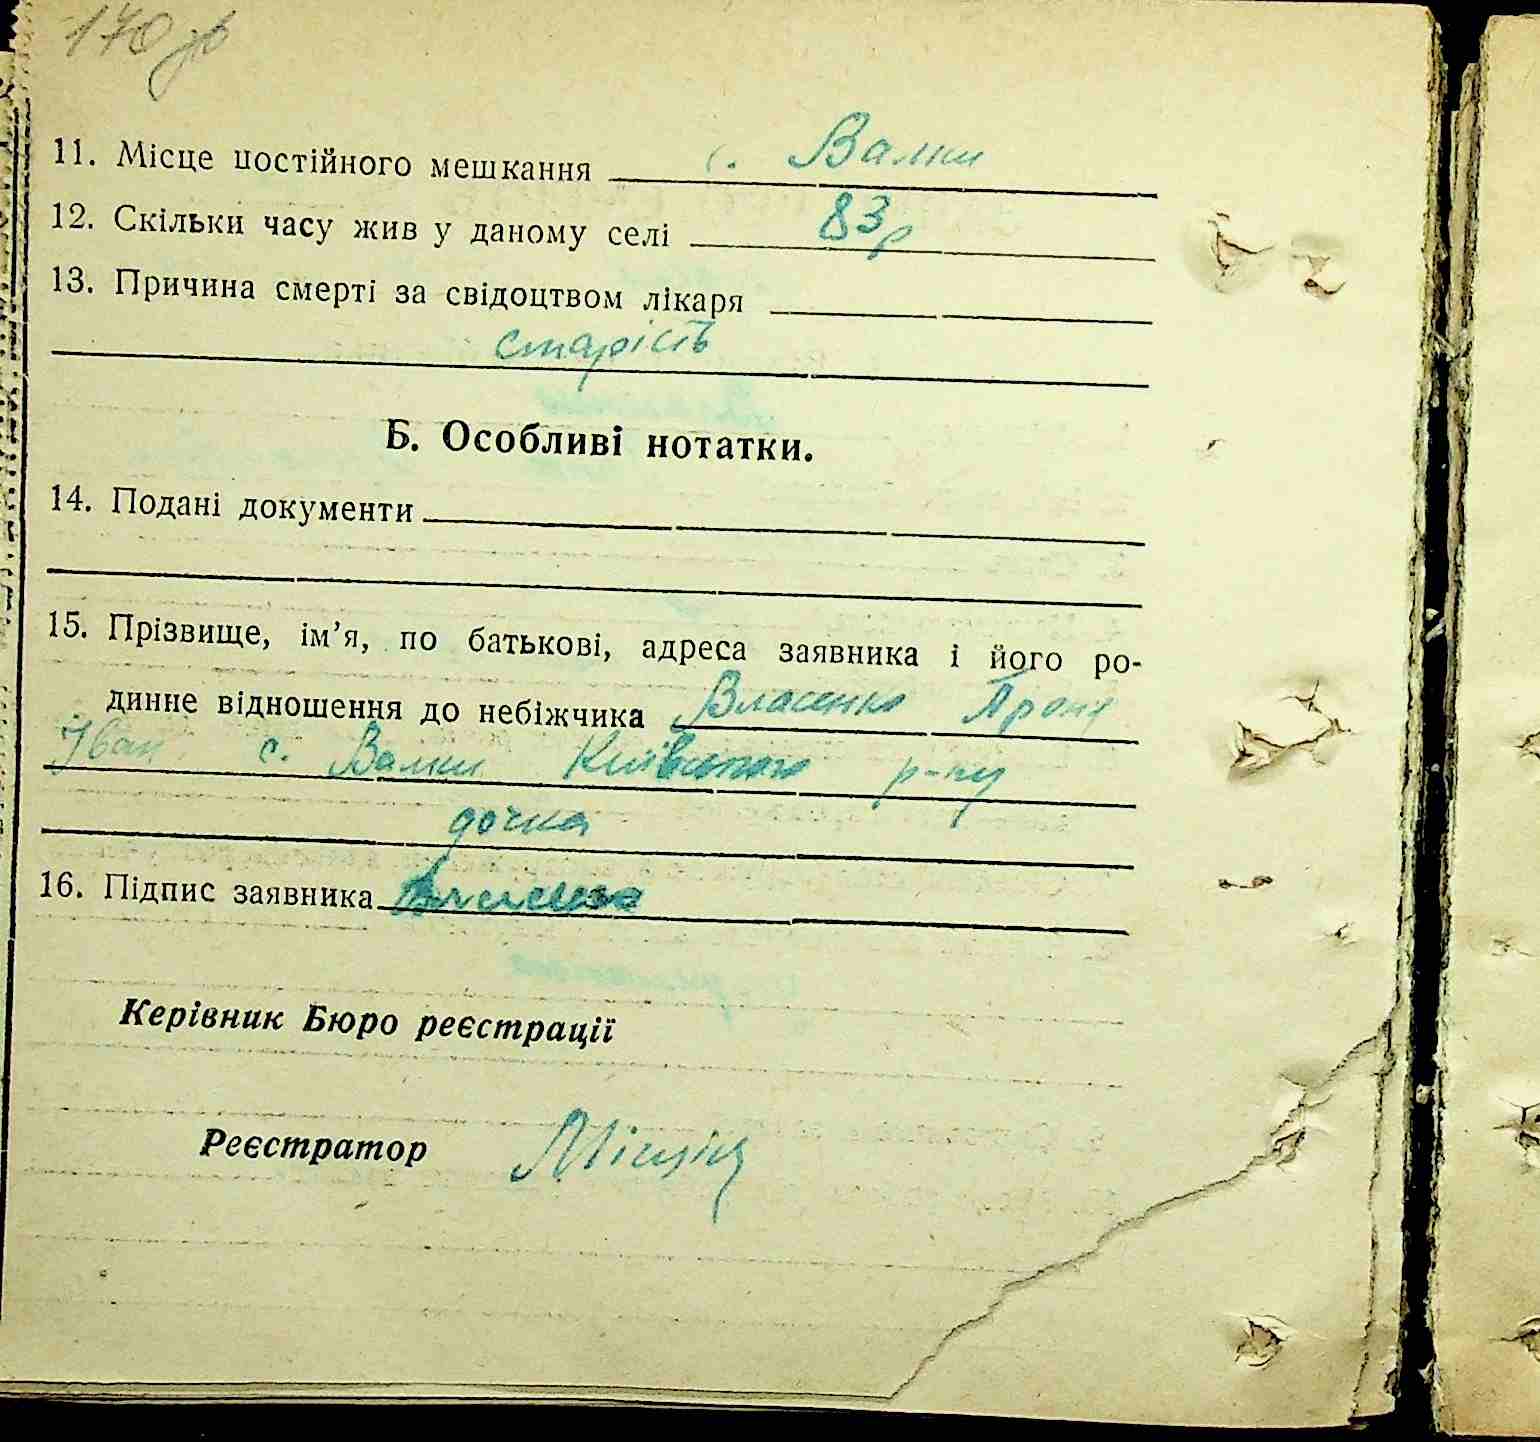 170 зв
11. Місце постійного мешкання с. Валки
12. Скільки часу жив у даному селі 83 р
13. Причина смерті за свідоцтвом лікаря
старість
Б. Особливі нотатки.
14. Подані документи
15. Прізвище, ім’я, по батькові, адреса заявника і його ро-
динне відношення до небіжчика Власенко
Іван с. Валки Київського р-ну
дочка
16. Підпис заявника Власенко
Керівник Бюро реєстрації
Реєстратор